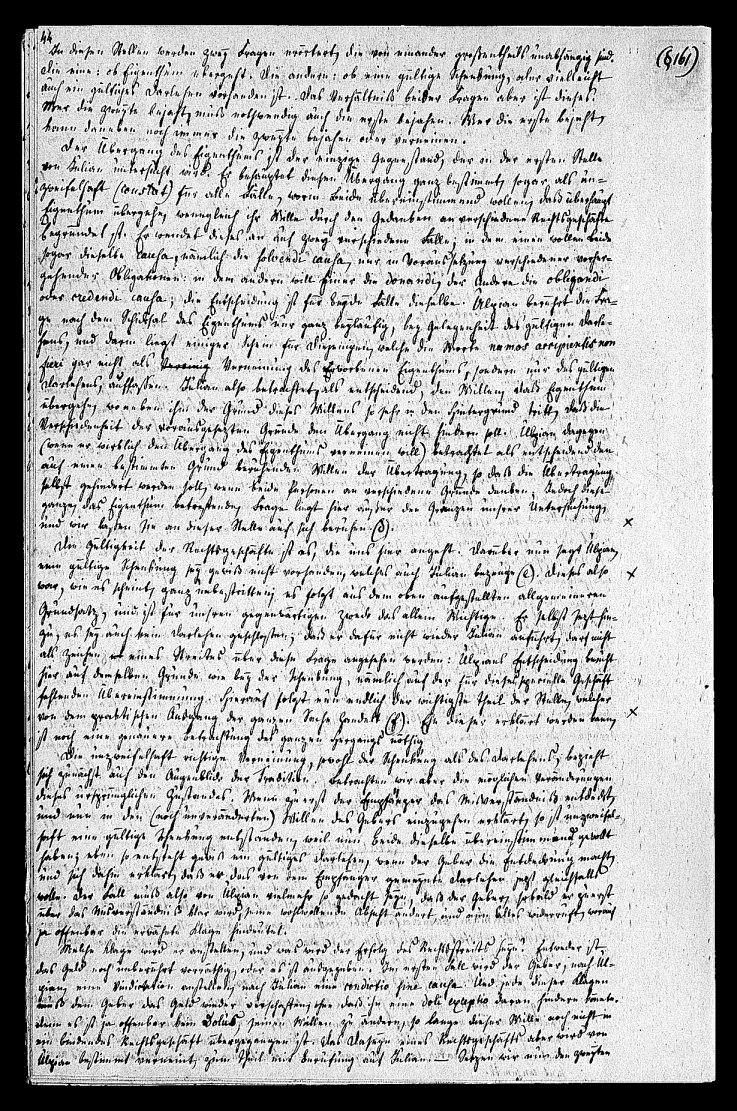 44
(§161)
In diesen Stellen werden zwey Fragen erörtert, die von einander großentheils unabhängig sind.
Die eine: ob Eigenthum übergeht. Die andere: ob eine gültige Schenkung, oder vielleicht
auch ein gültiges Darlehen vorhanden ist. Das Verhältniß beider Fragen aber ist dieses.
Wer die zweyte bejaht, muß nothwendig auch die erste bejahen. Wer die erste bejaht,
kann daneben noch immer die zweyte bejahen oder verneinen.
Der Übergang des Eigenthums ist der einzige Gegenstand, der in der ersten Stelle
von Julian untersucht wird. Er behauptet diesen Übergang ganz bestimmt, sogar als un-
zweifelhaft (constat) für alle Fälle, worin beide übereinstimmend wollen, daß überhaupt
Eigenthum übergehe, wenngleich ihr Wille durch den Gedanken an verschiedene Rechtsgeschäfte
begründet ist. Er wendet dieses an auf zwey verschiedene Fälle; in dem einen wollen beide
sogar dieselbe causa, nämlich die solvendi causa, nur in Voraussetzung verschiedener vorher-
gehender Obligationen: in dem andern will Einer die donandi, der Andere die obligandi
oder credendi causa; die Entscheidung ist für beyde Fälle dieselbe. Ulpian berührt die Fra-
ge nach dem Schicksal des Eigenthums nur ganz beyläufig, bey Gelegenheit des gültigen Darle-
hens, und darin liegt einiger Schein für Diejenigen, welche die Worte numos accipientis non
fieri gar nicht als Verneinung des erworbenen Eigenthums, sondern nur des gültigen
Darlehens, auffassen. Julian also betrachtet als entscheidend, den Willen, daß Eigenthum
übergehe, woneben ihm der Grund dieses Willens so sehr in den Hintergrund tritt, daß die
Verschiedenheit der vorausgesetzten Gründe den Übergang nicht hindern soll. Ulpian dagegen
(wenn er wirklich den Übergang des Eigenthums verneinen will) betrachtet als entscheidend den
auf einen bestimmten Grund beruhenden Willen der Übertragung, so daß die Übertragung
selbst gehindert werden soll, wenn beide Personen an verschiedene Gründe denken. Jedoch diese
ganze, das Eigenthum betreffende, Frage liegt hier außer den Gränzen unsrer Untersuchung,
und wir lassen sie an dieser Stelle auf sich beruhen (d).
Die Gültigkeit der Rechtsgeschäfte ist es, die uns hier angeht. Darüber nun sagt Ulpian,
eine gültige Schenkung sey gewiß nicht vorhanden, welches auch Julian bezeuge (e). Dieses also
war, wie es scheint, ganz unbestritten; es folgt aus dem oben aufgestellten allgemeineren
Grundsatz, und ist für unsren gegenwärtigen Zweck das allein Wichtige. Er selbst setzt hin-
zu, es sey auch kein Darlehen geschlossen; daß er dafür nicht wieder Julian anführt, darf nicht
als Zeichen eines Streites über diese Frage angesehen werden: Ulpians Entscheidung beruht
hier auf demselben Grunde wie bey der Schenkung, nämlich auf der für dieses specielle Geschäft
fehlenden Übereinstimmung. Hierauf folgt nun endlich der wichtigste Theil der Stelle, welcher
von dem praktischen Ausgang der ganzen Sache handelt (f). Ehe dieser erklärt werden kann,
ist noch eine genauere Betrachtung des ganzen Hergangs nöthig.
Die unzweifelhaft richtige Verneinung, sowohl der Schenkung als des Darlehens, bezieht
sich zunächst auf den Augenblick der Tradition. Betrachten wir aber die möglichen Veränderungen
dieses ursprünglichen Zustandes. Wenn zuerst der Empfänger das Misverständniß entdeckt,
und nun in den (noch unveränderten) Willen des Gebers einzugehen erklärt, so ist unzweifel-
haft eine gültige Schenkung entstanden, weil nun beide dieselbe übereinstimmend gewollt
haben; eben so entsteht gewiß ein gültiges Darlehen, wenn der Geber die Entdeckung macht,
und sich dahin erklärt, daß er das von dem Empfänger gemeynte Darlehen jetzt gleichfalls
wolle. Der Fall muß also von Ulpian vielmehr so gedacht seyn, daß der Geber, sobald er zuerst
über das Misverständniß klar wird, seine wohlwollende Absicht ändert, und nun Alles widerruft, worauf
ja offenbar die erwähnte Klage hindeutet.
Welche Klage wird er anstellen, und was wird der Erfolg des Rechtsstreits seyn? Entweder ist
das Geld noch unberührt vorräthig, oder es ist ausgegeben. Im ersten Fall wird der Geber, nach Ul-
pian, eine Vindication anstellen, nach Julian eine condictio sine causa. Und jede dieser Klagen
muß dem Geber das Geld wieder verschaffen, ohne daß ihn eine doli exceptio daran hindern könnte,
denn es ist ja offenbar kein Dolus, seinen Willen zu ändern, so lange dieser Wille noch nicht in
ein bindendes Rechtsgeschäft übergegangen ist. Das Daseyn eines Rechtsgeschäfts aber wird von
Ulpian bestimmt verneint, zum Theil mit Berufung auf Julian. — Setzen wir nun den zweyten